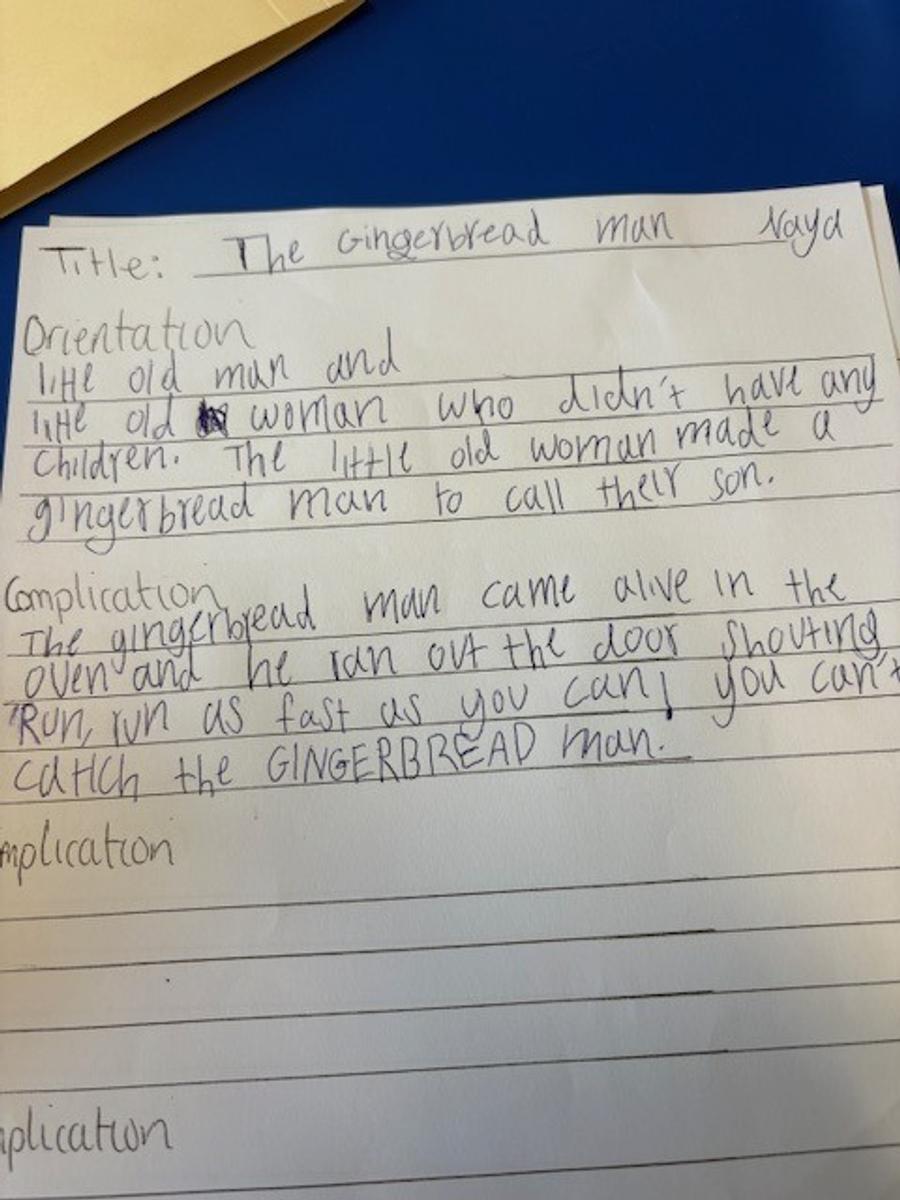 Title: The Gingerbread man Naya
Orientation
little old man and
little old woman who didn't have any
children. The little old woman made a
gingerbread man to call their son.
Complication
The gingerbread man came alive in the
oven and he ran out the door shouting
"Run, run as fast as you can, you can't
catich the GINGERBREAD man.
mplication
plication